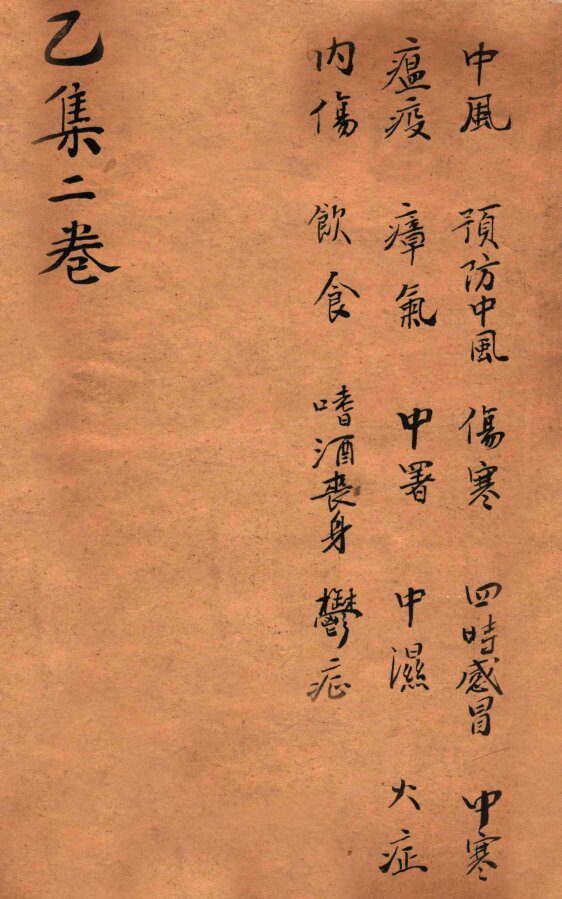 中風 預防中風 傷寒 四時感冒 中寒
瘟疫 瘴氣 中署 中濕 火症
内傷 飲食 嗜酒喪身 鬱症
乙集二卷